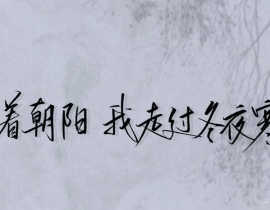 着朝阳 我走过冬夜寒